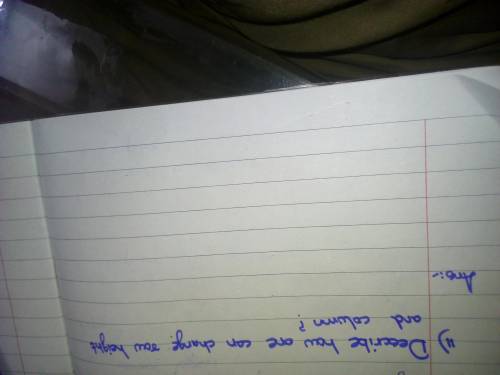 11) Describe how are can change row height
and column?
Ans:-